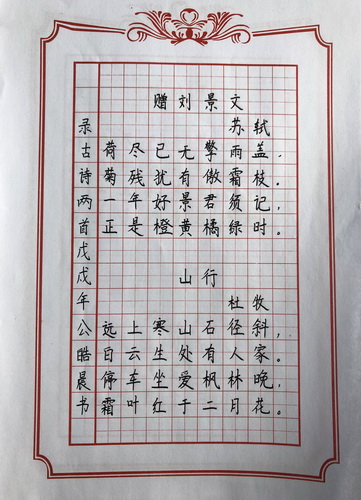 赠刘景文
苏轼
荷尽已无擎雨盖，
菊残扰有傲霜枝。
一年好景君须记，
正是橙黄橘绿时。
山行
杜牧
远上寒山石径斜，
白云生处有人家。
停车坐爱枫林晚，
霜叶红于二月花。
录古诗两首戊戌年公皓晨书